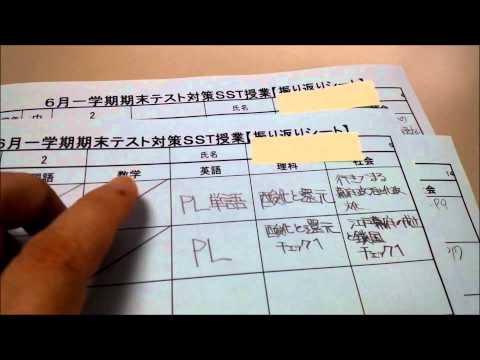 6月一学期期末テスト対策SST授業【振り返りシート】
2 氏名
6月一学期期末テスト対策SST授業【振り返りシート】
2 氏名
国語 数学 英語 理科 社会
PL単語 酸化と還元
PL 酸化と還元 江戸幕府の成立
チェック1 と鎖国
チェック1